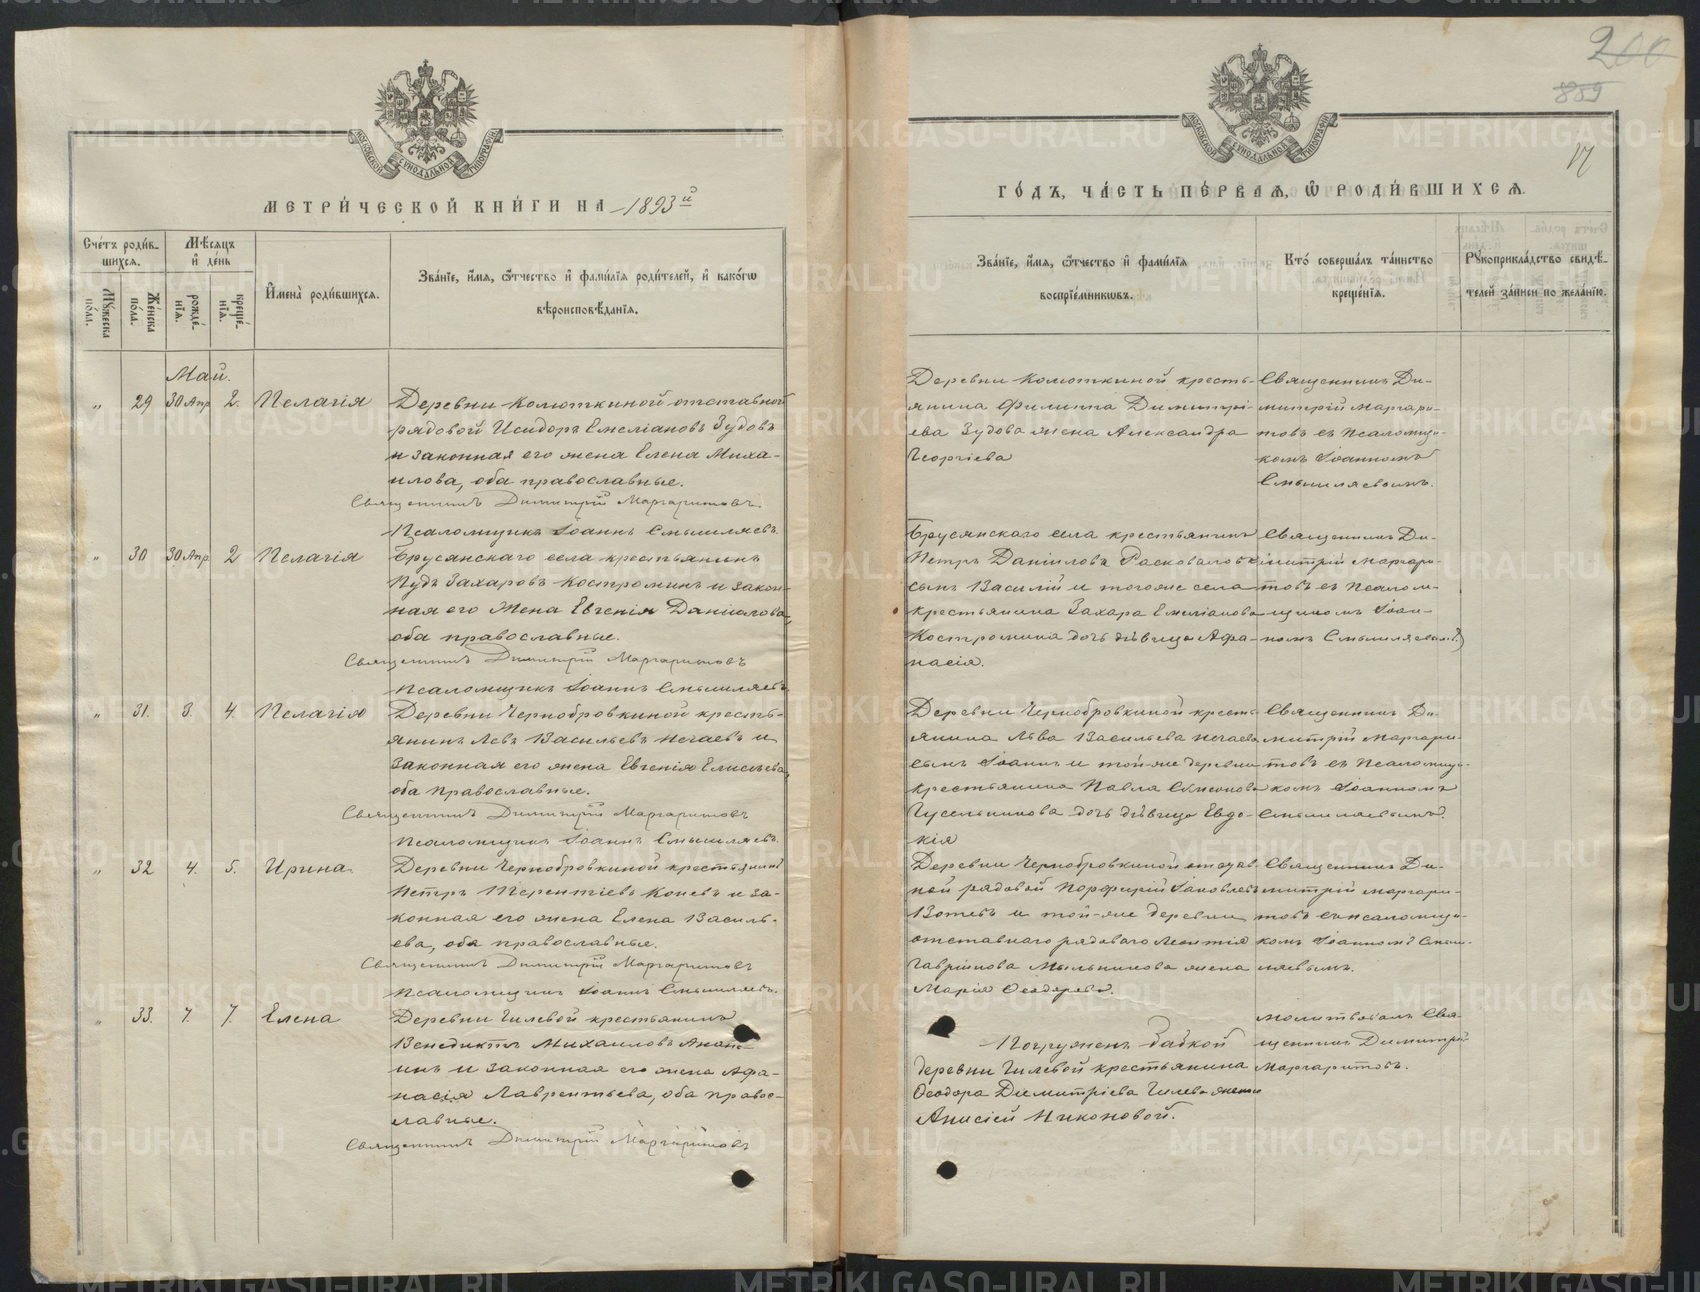 МЕТРИ́ЧЕСКОЙ КНИ́ГИ НА 1893й
Сче́тъ роди́в-
шихся.
Мѣ́сяцъ
и҆ де́нь
Мꙋ́жеска
по́ла.
Же́нска
по́ла.
рожде́-
нїя.
креще́-
нїя.
И҆мена̀ роди́вшихся.
Зва́нїе, и҆́мя, ѻ҆́тчество и҆ фами́лїя роди́телей, и҆ како́гѡ
вѣроисповѣ́данїя.
Май.
„ 29 30 Апр 2. Пелагія
Деревни Колюткиной отставной
рядовой Исидоръ Емеліановъ Зудовъ
и законная его жена Елена Миха-
илова, оба православные.
Священникъ Димитрій Маргаритовъ.
Псаломщикъ Іоаннъ Смышляевъ.
„ 30 30 Апр 2 Пелагія
Брусянскаго села крестьянинъ
Пудъ Захаровъ Костроминъ и закон-
ная его жена Евгенія Даніилова,
оба православные.
Священникъ Димитрій Маргаритовъ
Псаломщикъ Іоаннъ Смышляевъ.
„ 31. 3. 4. Пелагія
Деревни Чернобровкиной кресть-
янинъ Левъ Васильевъ Нечаевъ и
законная его жена Евгенія Елисѣева,
оба православные.
Священникъ Димитрій Маргаритовъ
Псаломщикъ Іоаннъ Смышляевъ.
„ 32 4. 5. Ирина
Деревни Чернобровкиной крестьянинъ
Петръ Терентіевъ Коневъ и за-
конная его жена Елена Василь-
ева, оба православные.
Священникъ Димитрій Маргаритовъ
Псаломщикъ Іоаннъ Смышляевъ.
„ 33. 7. 7. Елена
Деревни Гилевой крестьянинъ
Венедиктъ Михаиловъ Анань-
инъ и законная его жена Афа-
насія Лаврентьева, оба право-
славные.
Священникъ Димитрій Маргаритовъ
200
859
17
ГО́ДЪ, ЧА́СТЬ ПЕ́РВАЯ, Ѡ҆ РОДИ́ВШИХСЯ.
Зва́нїе, и҆́мя, ѻ҆́тчество и҆ фами́лїя
воспрїе́мникѡвъ.
Кто̀ соверша́лъ та́инство
креще́нїя.
Рꙋкоприкла́дство свидѣ́-
телей за́писи по жела́нїю.
Деревни Колюткиной кресть-
янина Филиппа Димитрі-
ева Зудова жена Александра
Георгіева
Священникъ Ди-
митрій Маргари-
товъ съ псаломщи-
комъ Іоанномъ
Смышляевымъ.
Брусянскаго села крестьянинъ
Петръ Даніиловъ Расковаловъ
сынъ Василій и того же села
крестьянина Захара Емеліанова
Костромина дочь дѣвица Афа-
насія.
Священникъ Ди-
митрій Маргари-
товъ съ псалом-
щикомъ Іоан-
номъ Смышляевымъ
Деревни Чернобровкиной кресть-
янина Льва Васильева Нечаева
сынъ Іоаннъ и той-же деревни
крестьянина Павла Симонова
Гусельникова дочь дѣвица Евдо-
кія
Священникъ Ди-
митрій Маргари-
товъ съ псаломщи-
комъ Іоанномъ
Смышляевымъ.
Деревни Чернобровкиной отстав-
ной рядовой Порфирій Іаковлевъ
Вотевъ и той-же деревни
отставнаго рядоваго Леонтія
Гавріилова Мыльникова жена
Марія Ѳеодорова.
Священникъ Ди-
митрій Маргари-
товъ съ псаломщи-
комъ Іоанномъ Смыш-
ляевымъ.
Погруженъ бабкой
деревни Гилевой крестьянина
Ѳеодора Димитріева Гилева женою
Анисіей Никоновой.
Молитвовалъ Свя-
щенникъ Димитрій
Маргаритовъ.